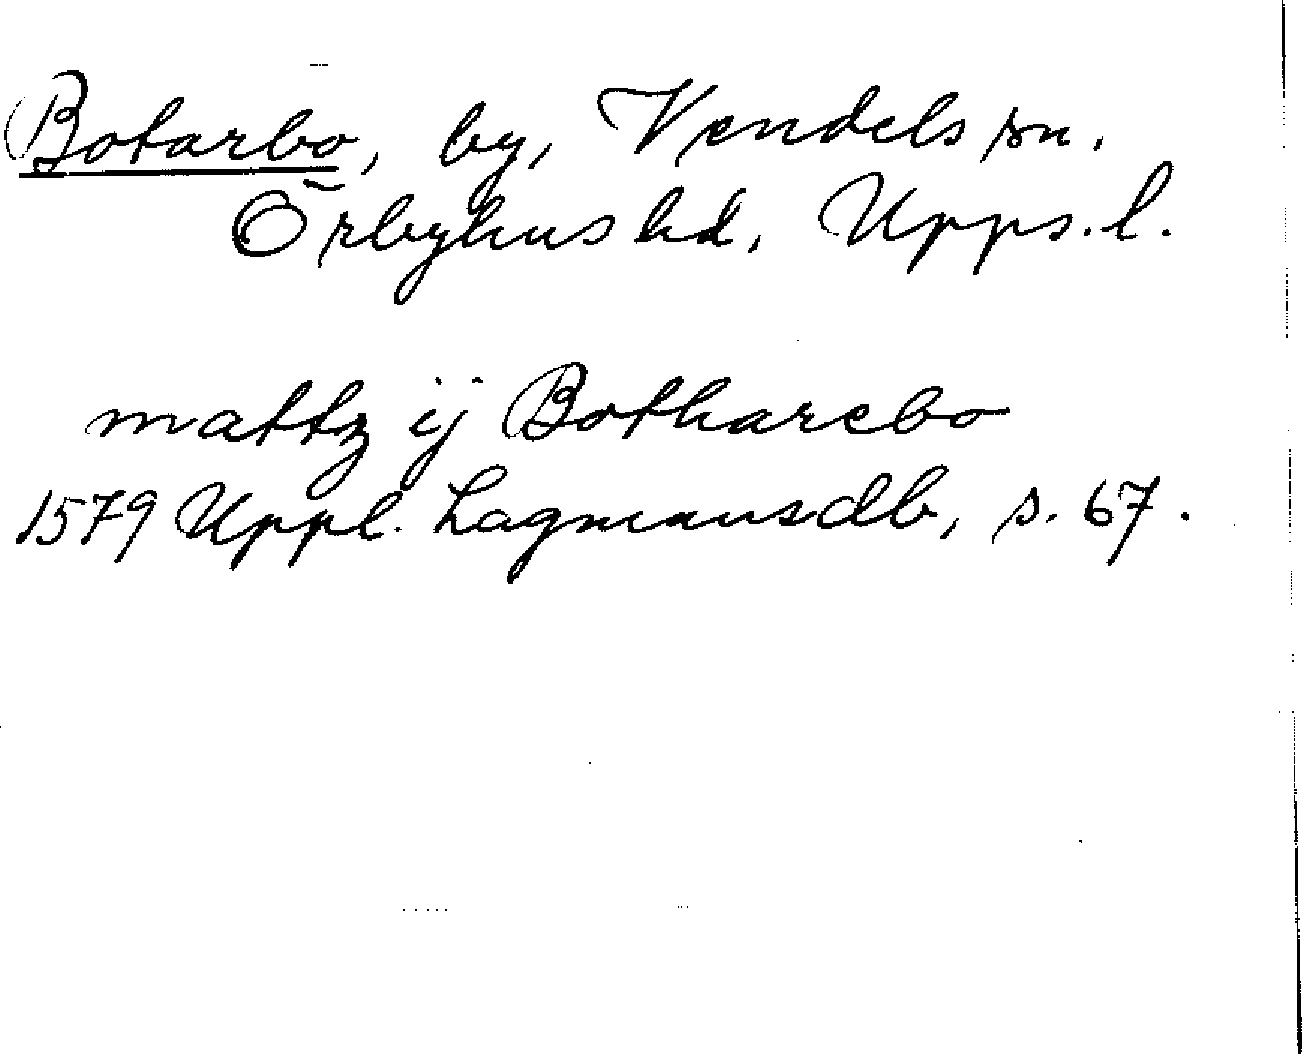 Botarbo, by, Vendels sn.
Örbyhus hd, Upps. l.
mattz ij Botharebo
1579 Uppl. Lagmansdb, s. 67.